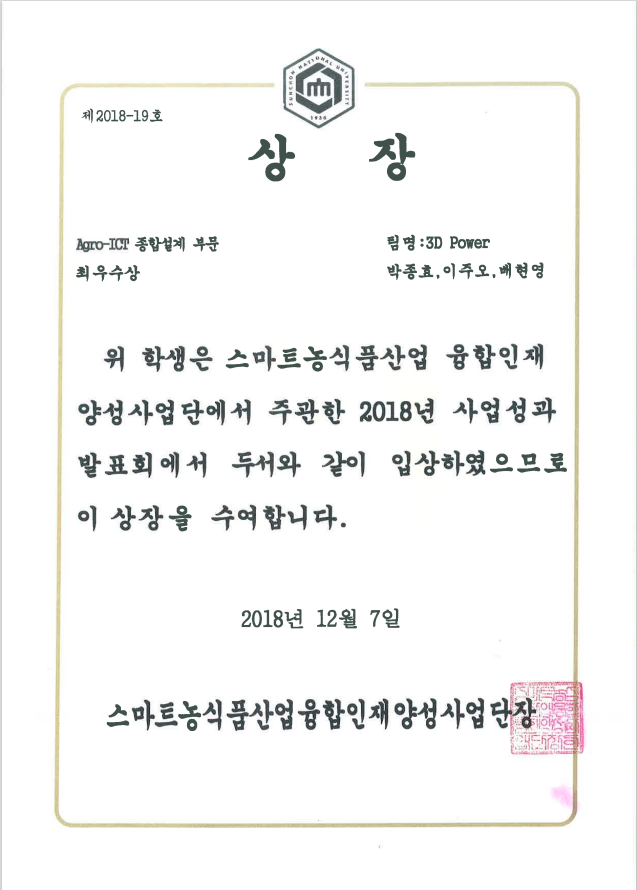 SUNCHON NATIONAL UNIVERSITY
1935
제2018-19호
상 장
Agro-ICT 종합설계 부문
팀명:3D Power
최우수상
박종효,이주오,배현영
위 학생은 스마트농식품산업 융합인재
양성사업단에서 주관한 2018년 사업성과
발표회에서 두서와 같이 입상하였으므로
이 상장을 수여합니다.
2018년 12월 7일
스마트농식품산업융합인재양성사업단장